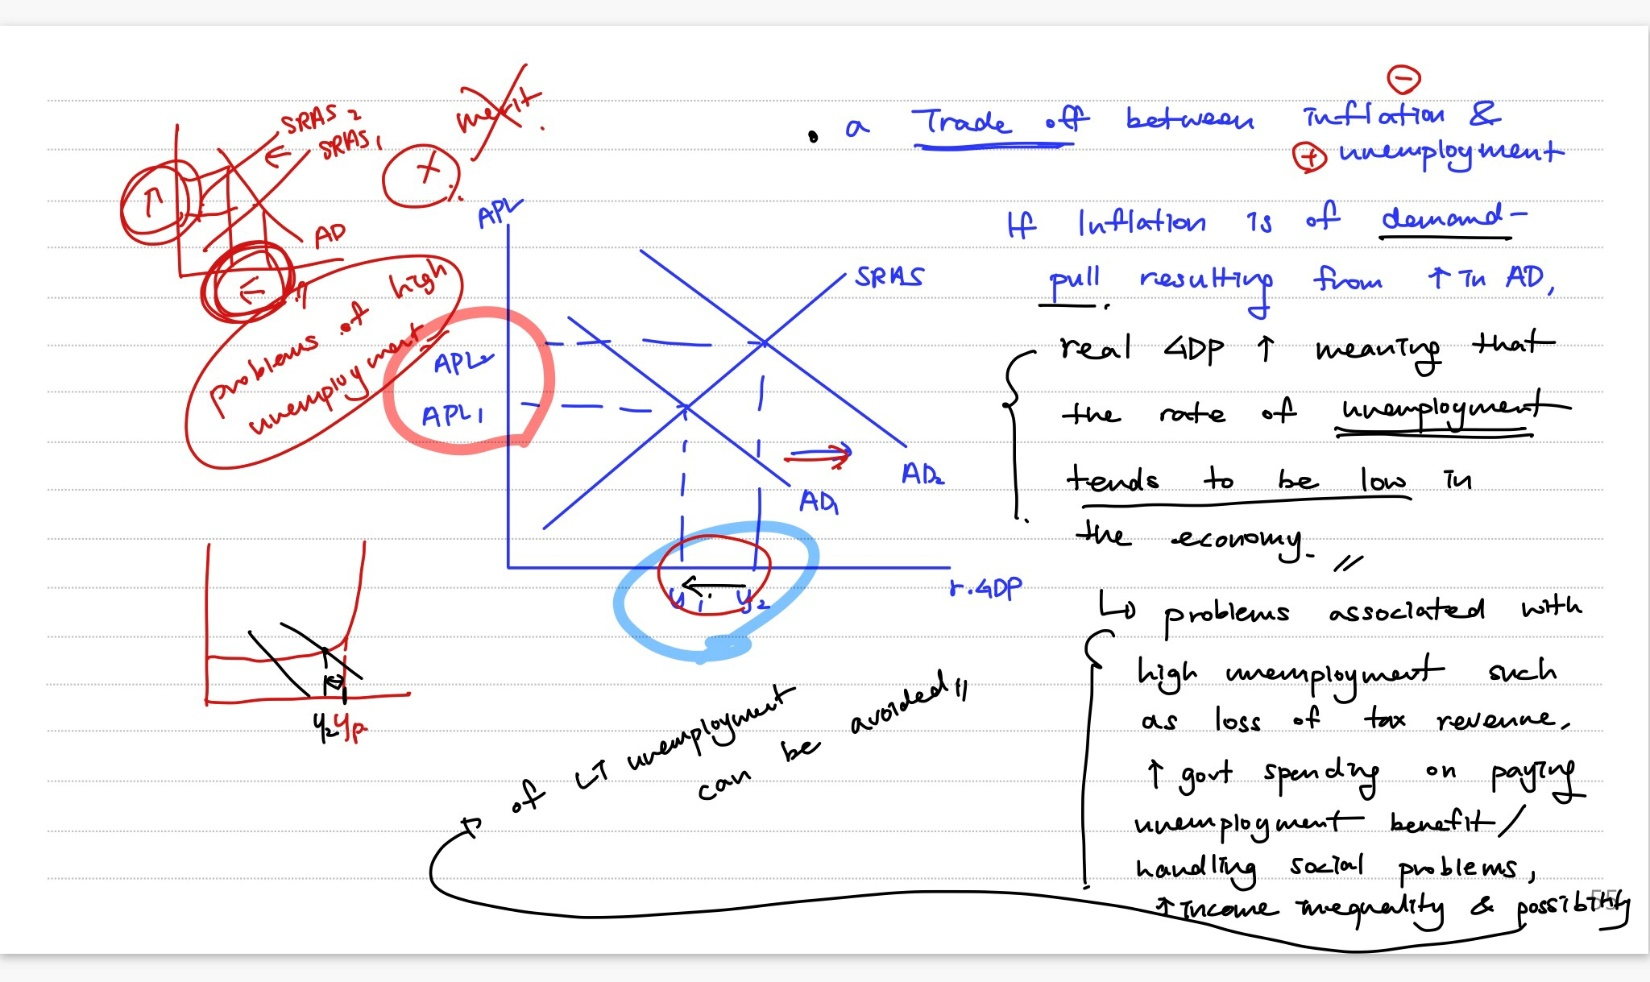 SRAS 2
SRAS 1
AD
merit.
problems of high
unemployment
APL
APL2
APL1
SRAS
AD2
AD1
y1 y2
r.GDP
y2 yp
⊖
• a Trade off between inflation &
⊕ unemployment
If Inflation is of demand-
pull resulting from ↑ in AD,
real GDP ↑ meaning that
the rate of unemployment
tends to be low in
the economy. //
↳ problems associated with
high unemployment such
as loss of tax revenue,
↑ govt spending on paying
unemployment benefit/
handling social problems,
↑ income inequality & possibility
of LT unemployment
can be avoided //